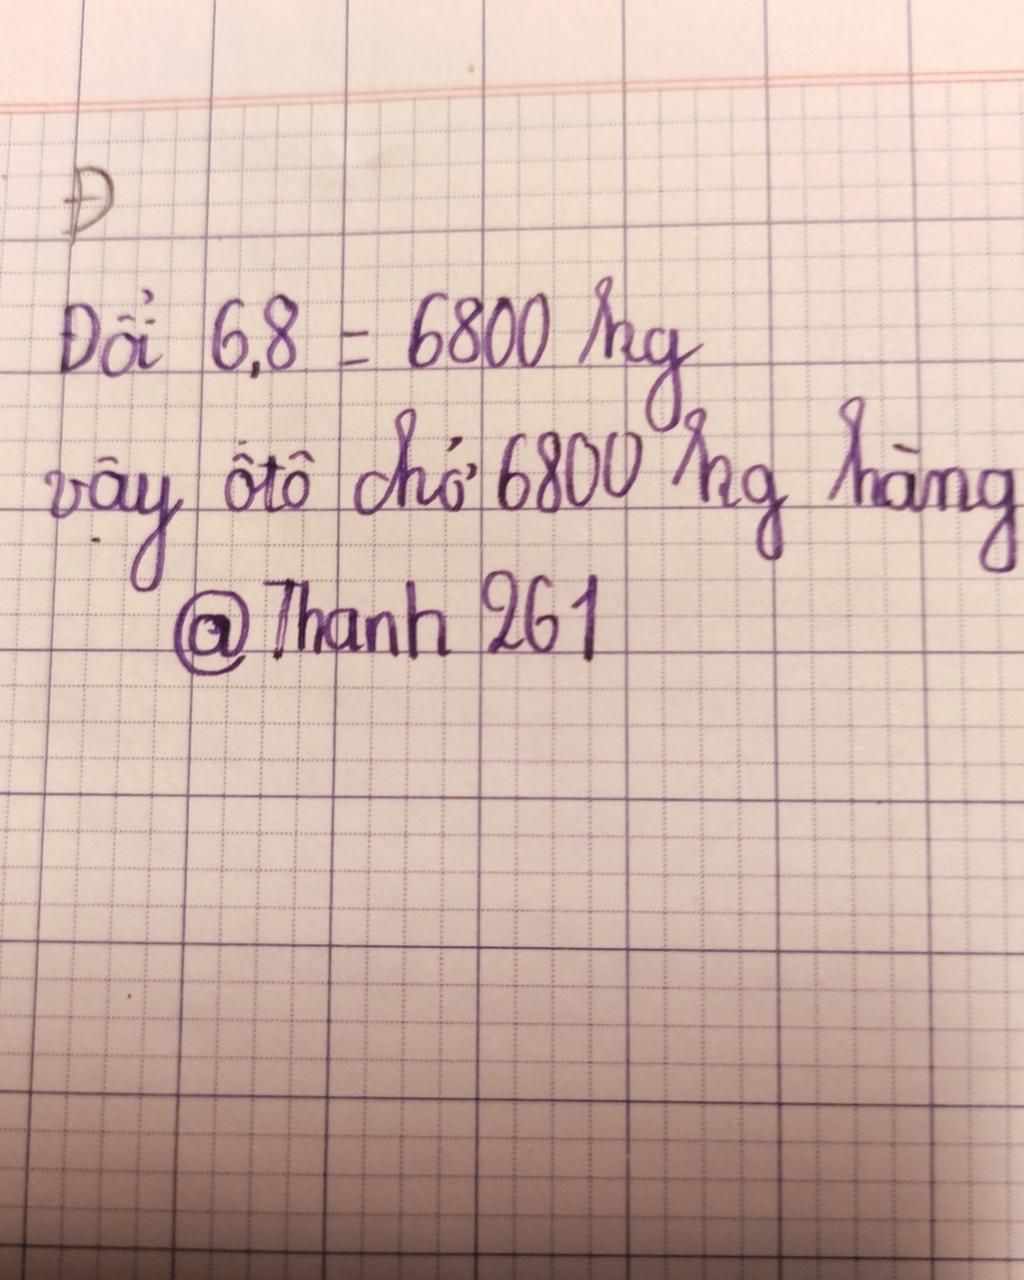 Đ
Đổi 6,8 = 6800 kg
vậy ôtô chở 6800 kg hàng
@Thanh 261